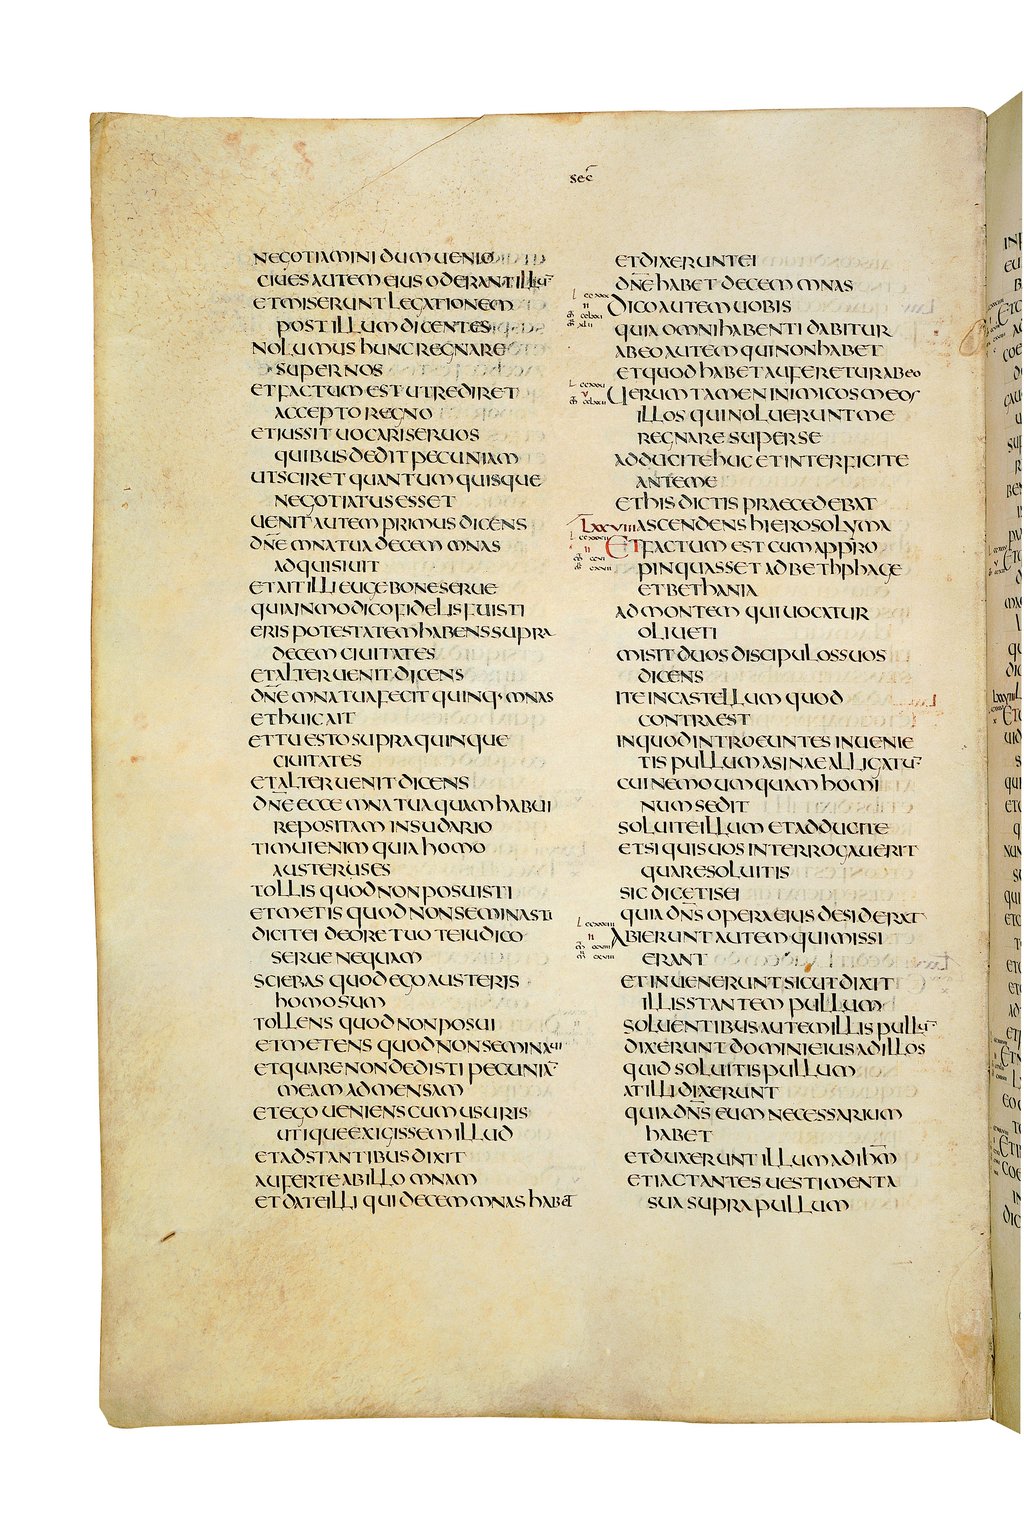 sec̄
NEGOTIAMINI DUM UENIO
CIUES AUTEM EIUS ODERANT ILLŪ
ET MISERUNT LEGATIONEM
POST ILLUM DICENTES
NOLUMUS HUNC REGNARE
SUPER NOS
ET FACTUM EST UT REDIRET
ACCEPTO REGNO
ET IUSSIT UOCARI SERUOS
QUIBUS DEDIT PECUNIAM
UT SCIRET QUANTUM QUISQUE
NEGOTIATUS ESSET
UENIT AUTEM PRIMUS DICENS
DN̄E MNA TUA DECEM MNAS
ADQUISIUIT
ET AIT ILLI EUGE BONE SERUE
QUIA IN MODICO FIDELIS FUISTI
ERIS POTESTATEM HABENS SUPRA
DECEM CIUITATES
ET ALTER UENIT DICENS
DN̄E MNA TUA FECIT QUINQ· MNAS
ET HUIC AIT
ET TU ESTO SUPRA QUINQUE
CIUITATES
ET ALTER UENIT DICENS
DN̄E ECCE MNA TUA QUAM HABUI
REPOSITAM IN SUDARIO
TIMUI ENIM QUIA HOMO
AUSTERUS ES
TOLLIS QUOD NON POSUISTI
ET METIS QUOD NON SEMINASTI
DICIT EI DE ORE TUO TE IUDICO
SERUE NEQUAM
SCIEBAS QUOD EGO AUSTERIS
HOMO SUM
TOLLENS QUOD NON POSUI
ET METENS QUOD NON SEMINAUI
ET QUARE NON DEDISTI PECUNIĀ
MEAM AD MENSAM
ET EGO UENIENS CUM USURIS
UTIQUE EXIGISSEM ILLUD
ET ADSTANTIBUS DIXIT
AUFERTE AB ILLO MNAM
ET DATE ILLI QUI DECEM MNAS HABET
ET DIXERUNT EI
DN̄E HABET DECEM MNAS
DICO AUTEM UOBIS
QUIA OMNI HABENTI DABITUR
AB EO AUTEM QUI NON HABET
ET QUOD HABET AUFERETUR AB EO
UERUM TAMEN INIMICOS MEOS
ILLOS QUI NOLUERUNT ME
REGNARE SUPER SE
ADDUCITE HUC ET INTERFICITE
ANTE ME
ET HIS DICTIS PRAECEDEBAT
LXXVIII ASCENDENS HIEROSOLYMA
ET FACTUM EST CUM APPRO
PINQUASSET AD BETHPHAGE
ET BETHANIA
AD MONTEM QUI UOCATUR
OLIUETI
MISIT DUOS DISCIPULOS SUOS
DICENS
ITE IN CASTELLUM QUOD
CONTRA EST
IN QUOD INTROEUNTES INUENIE
TIS PULLUM ASINAE ALLIGATŪ
CUI NEMO UMQUAM HOMI
NUM SEDIT
SOLUITE ILLUM ET ADDUCITE
ET SI QUIS UOS INTERROGAUERIT
QUARE SOLUITIS
SIC DICETIS EI
QUIA DN̄S OPERA EIUS DESIDERAT
ABIERUNT AUTEM QUI MISSI
ERANT
ET INUENERUNT SICUT DIXIT
ILLIS STANTEM PULLUM
SOLUENTIBUS AUTEM ILLIS PULLŪ
DIXERUNT DOMINI EIUS AD ILLOS
QUID SOLUITIS PULLUM
AT ILLI DIXERUNT
QUIA DN̄S EUM NECESSARIUM
HABET
ET DUXERUNT ILLUM AD IHM̄
ET IACTANTES UESTIMENTA
SUA SUPRA PULLUM